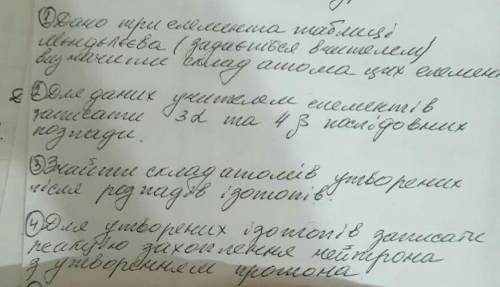 ① Дано три елемента таблиці
Мєндєлєєва (задається вчителем)
визначити склад атома цих елемен
② Для даних учителем елементів
записати 3α та 4β послідовних
розпади.
③ Знайти склад атомів утворених
після розпадів ізотопів.
④ Для утворених ізотопів записати
реакцію захоплення нейтрона
з утворенням протона.